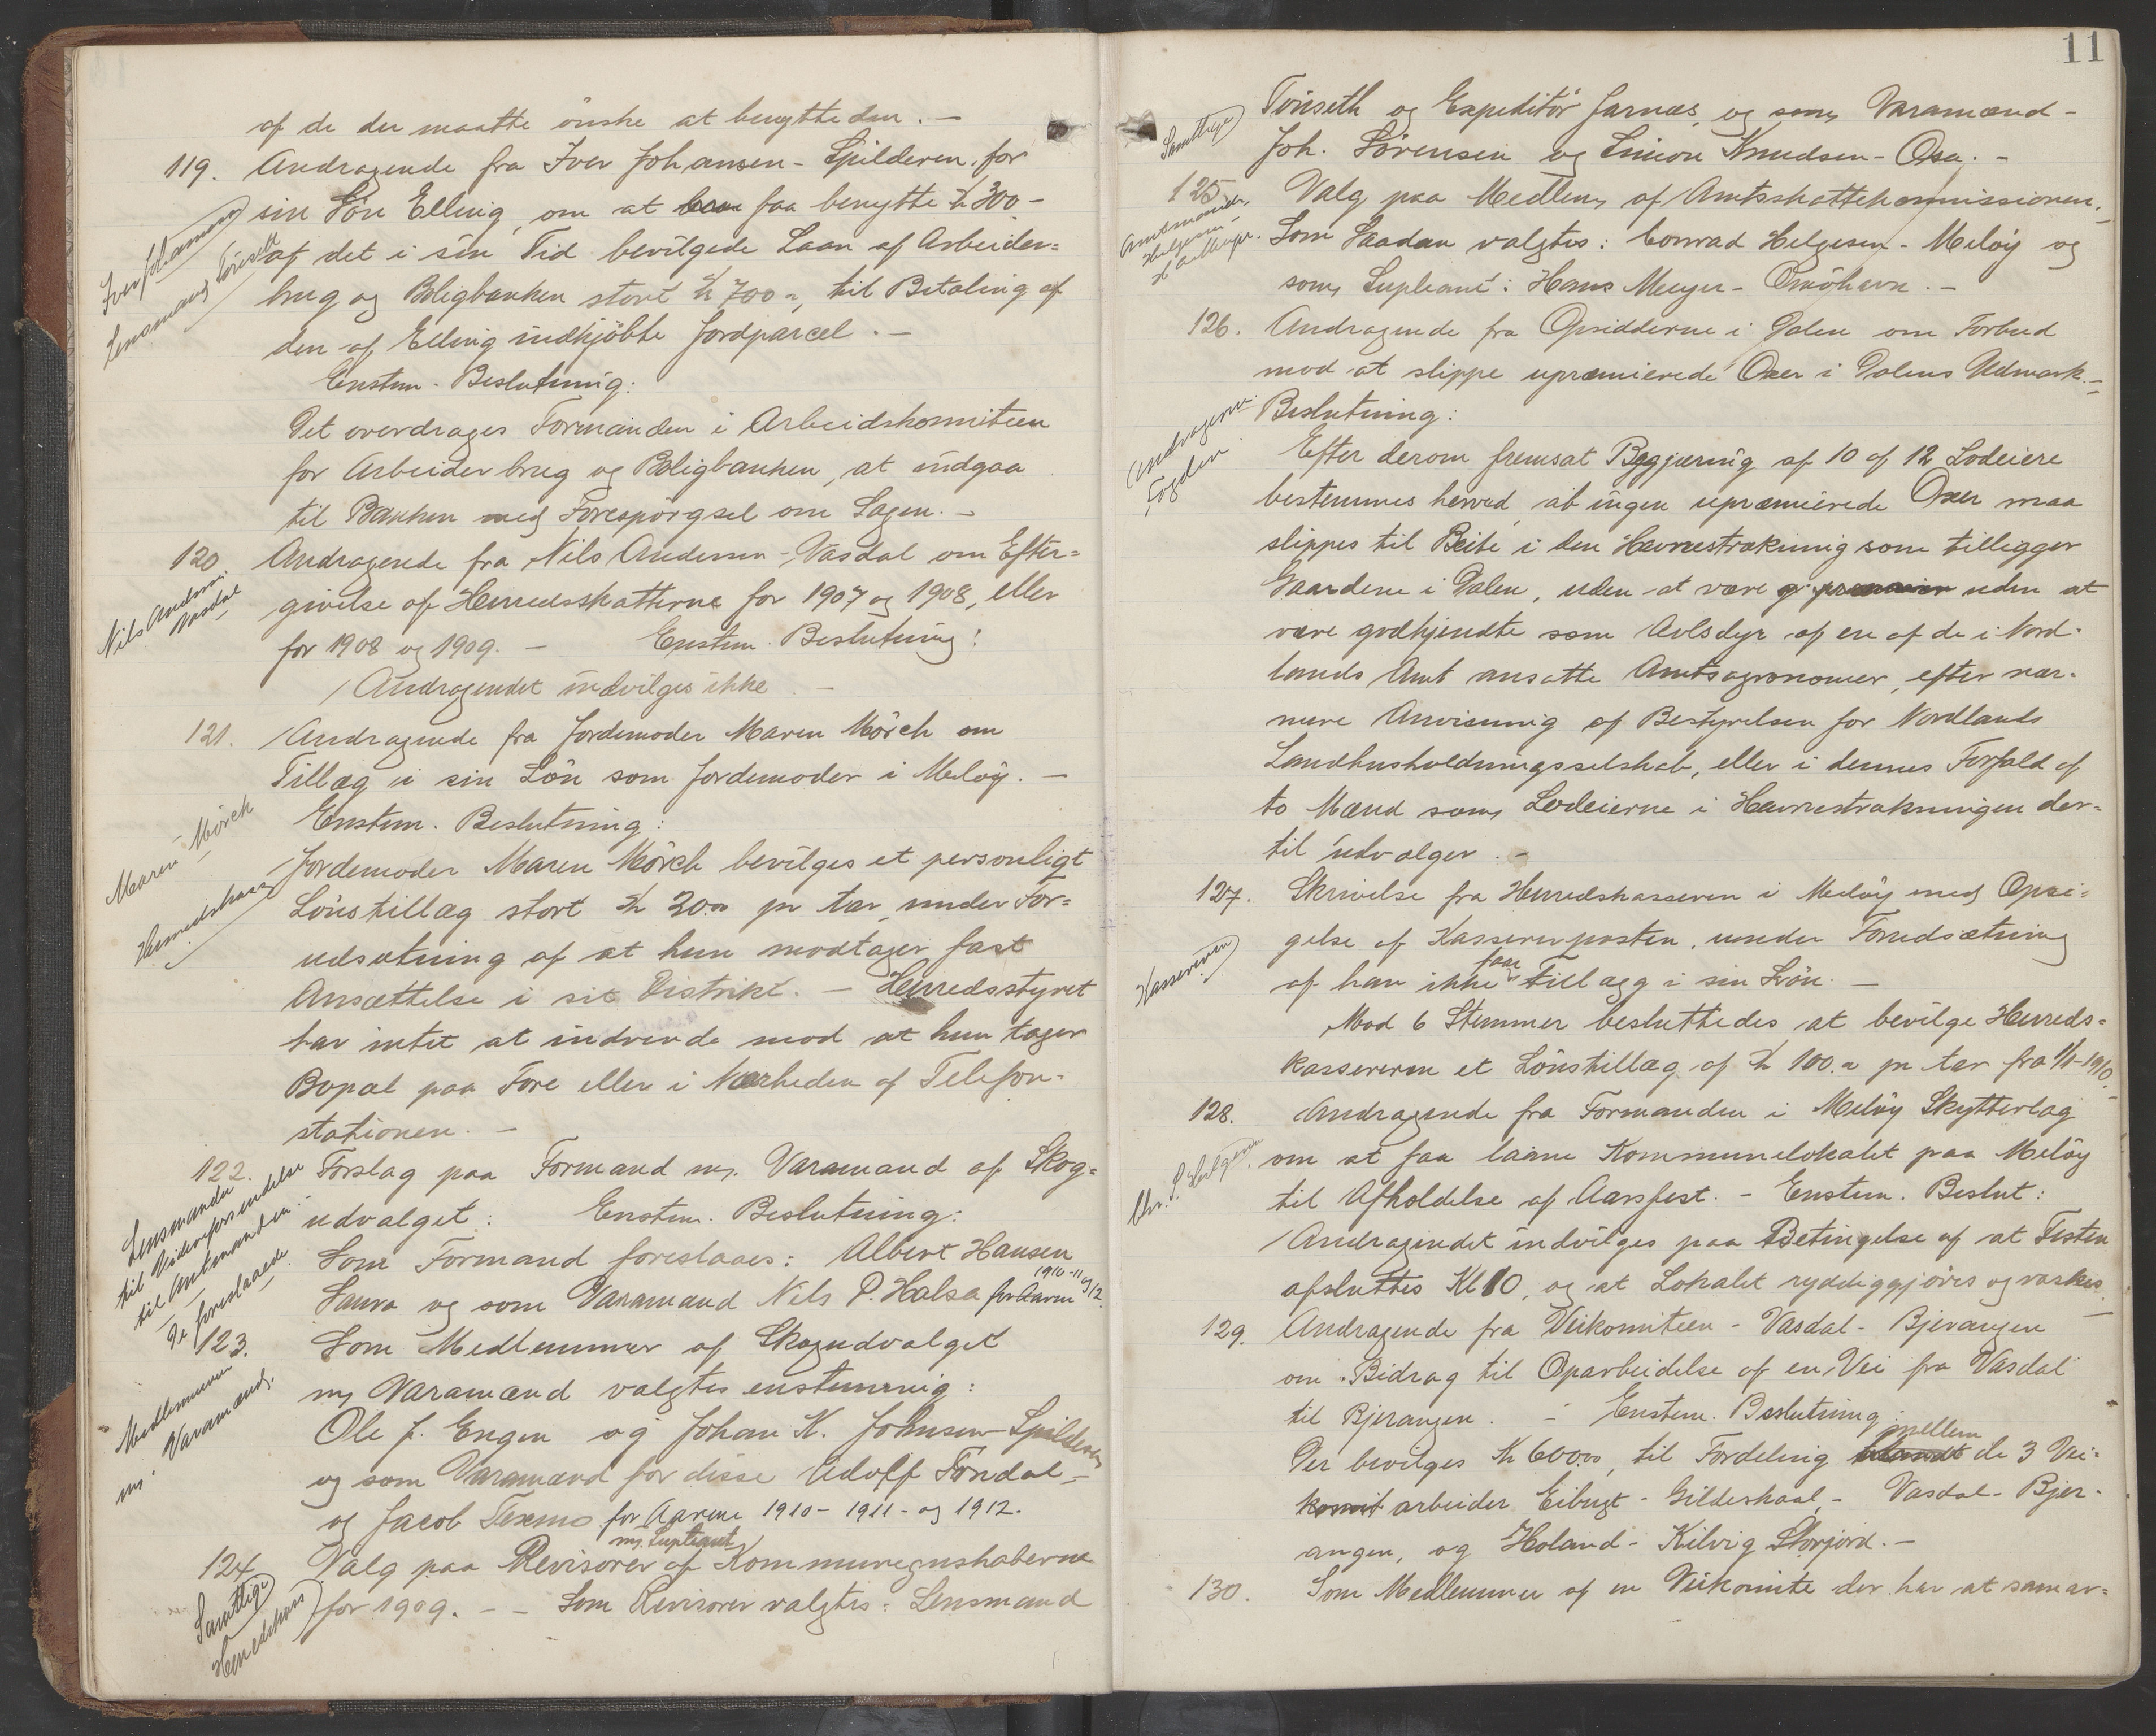 af de der maatte ønske at benytte den. –
119. Andragende fra Iver Johansen - Spilderen, for
sin Søn Elling, om at faa benytte Kr 300 –
af det i sin Tid bevilgede Laan af Arbeider=
brug og Boligbanken stort Kr 700 –, til Betaling af
den af Elling indkjøbte Jordparcel. –
Enstem. Beslutning:
Det overdrages Formanden i Arbeidskomiteen
for Arbeiderbrug og Boligbanken, at indgaa
til Banken med Forespørgsel om Sagen. –
Iver Johansen
Lensmand Tönseth
120. Andragende fra Nils Andersen - Vasdal om Efter=
givelse af Herredsskatterne for 1907 og 1908, eller
for 1908 og 1909. – Enstem. Beslutning:
Andragendet indvilges ikke. –
Nils Andersen
Vasdal
121. Andragende fra Jordemoder Maren Mörch om
Tillæg i sin Løn som Jordemoder i Meløy. –
Enstem. Beslutning:
Jordemoder Maren Mörch bevilges et personligt
Lønstillæg stort Kr 20.00 pr Aar, under For=
udsætning af at hun modtager fast
Ansættelse i sit Distrikt. – Herredsstyret
har intet at indvende mod at hun tager
Bopæl paa Fore eller i Nærheden af Telefon-
stationen. –
Maren Mörch
Herredskas
122. Forslag paa Formand m. Varamand af Skog=
udvalget: Enstem. Beslutning:
Som Formand foreslaaes: Albert Hansen
Saura og som Varamand Nils P. Halsa for Aarene 1910-11 og 12.
Lensmanden
til Videreforsendelse
til Amtmanden.
De foreslaaede
123. Som Medlemmer af Skogudvalget
m. Varamænd valgtes enstemmig:
Ole J. Engen og Johan K. Johnsen Spilderen
og som Varamænd for disse Adolf Torsdal –
og Jacob Texmo for Aarene 1910 – 1911 – og 1912.
Medlemmerne
m. Varamænd.
124 Valg paa Revisorer m. Supleant af Kommuneregnskaberne
for 1909. – – Som Revisorer valgtes: Lensmand
Samtlige
Herredskas
11
Tönseth og Expeditör Jarnæs, og som Varamænd –
Joh. Sörensen og Simon Knudsen - Osa. –
Samtlige
125 Valg paa Medlem af Amtsskattekommissionen. –
Som Saadan valgtes: Conrad Helgesen - Meløy og
som Supleant: Hans Meyer - Ørnøhavn. –
Amtmanden
Helgesen
H Meyer.
126. Andragende fra Opsidderne i Dalen om Forbud
mod at slippe upræmierede Oxer i Dalens Udmark. –
Beslutning:
Efter derom fremsat Begjæring af 10 af 12 Lodeiere
bestemmes herved, at ingen upræmierede Oxer maa
slippes til Beite i den Havnestrækning som tilligger
Gaardene i Dalen, uden at være uden at
være godkjendte som Avlsdyr af en af de i Nord-
lands Amt ansatte Amtsagronomer, efter nær-
mere Anvisning af Bestyrelsen for Nordlands
Landhusholdningsselskab, eller i dennes Forfald af
to Mænd som Lodeierne i Havnestrækningen der=
til udvælger. –
Andragerne.
Fogden.
127. Skrivelse fra Herredskasseren i Meløy med Opsi=
gelse af Kassererposten, under Forudsætning
af han ikke faar Tillægg i sin Løn. –
Mod 6 Stemmer besluttedes at bevilge Herreds=
kassereren et Lønstillæg af Kr 100.– pr Aar fra 1/1-1910.
Kassereren
128. Andragende fra Formanden i Meløy Skytterlag
om at faa laane Kommunelokalet paa Meløy
til Afholdelse af Aarsfest. – Enstem. Beslut:
Andragendet indvilges paa Betingelse af at Festen
afsluttes Kl 10, og at Lokalet ryddeggjøres og vaskes. –
Chr. P. Helgesen.
129. Andragende fra Veikomiteen - Vasdal - Bjerangen
om Bidrag til Oparbeidelse af en Vei fra Vasdal
til Bjerangen. – Enstem. Beslutning:
Der bevilges Kr 600.00, til Fordeling mellem de 3 Vei-
arbeider Eibugt - Gildeskaal - Vasdal - Bjer-
angen, og Holand - Kilvig Storjord. –
130. Som Medlemmer af en Veikomite der har at samar=